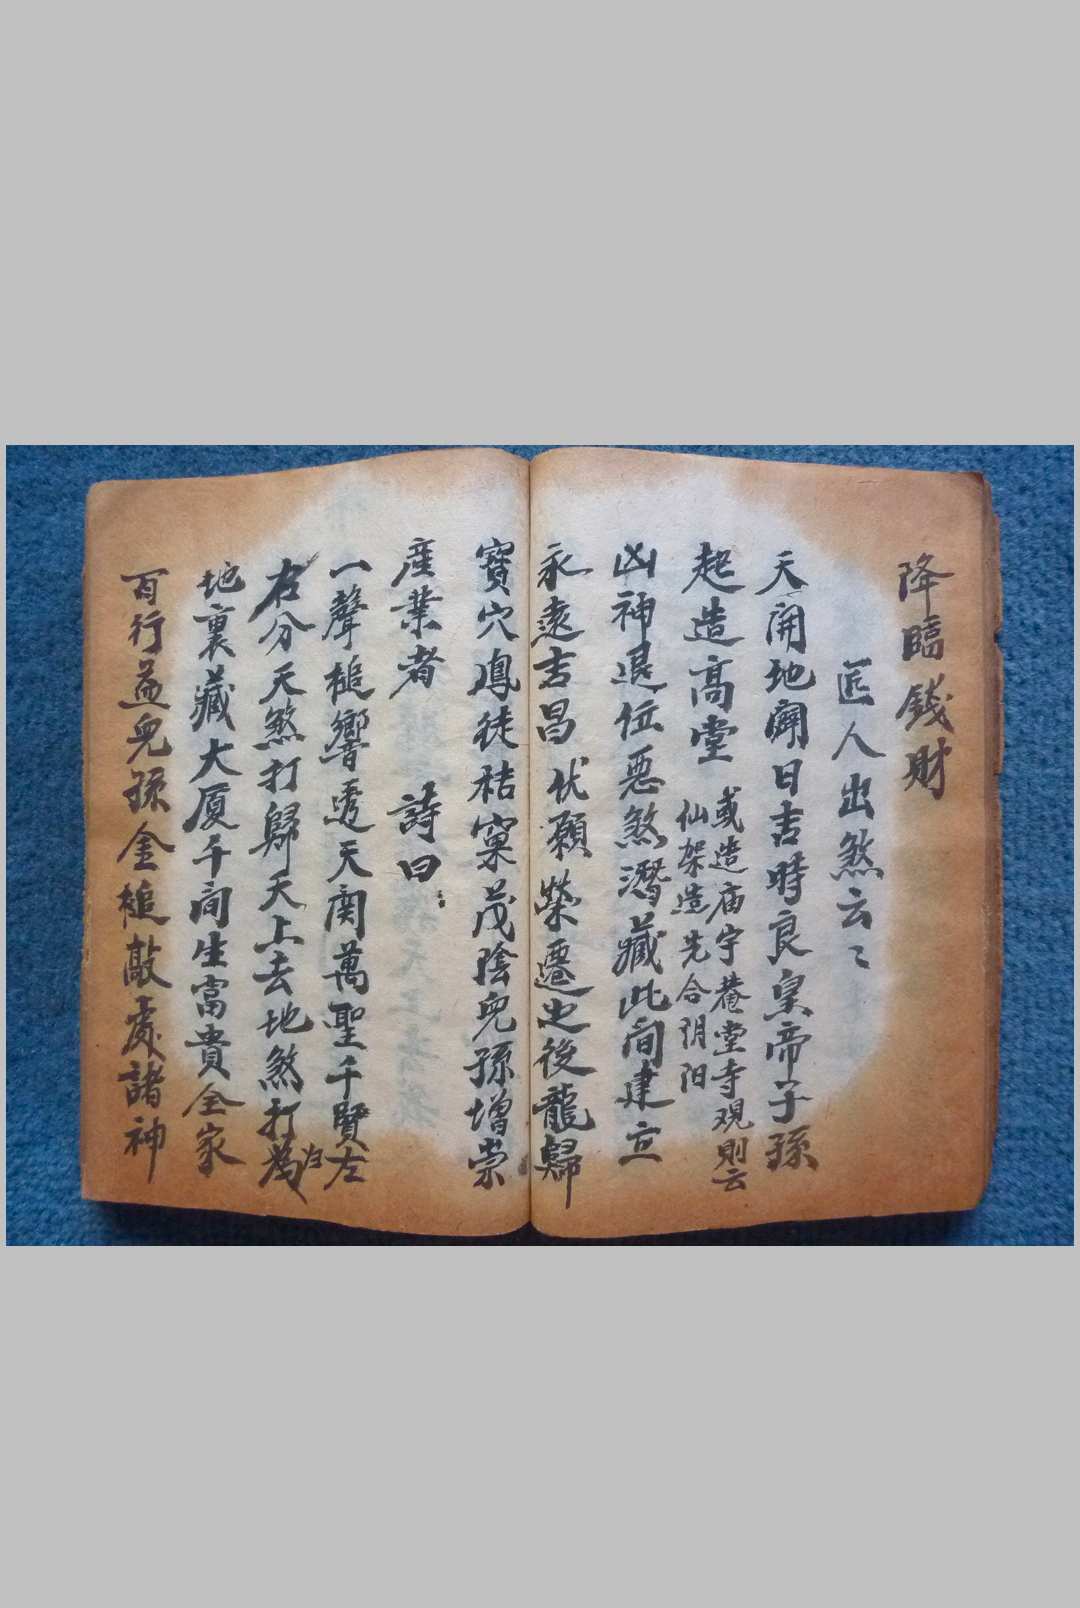 降臨錢財
匠人出煞云〻
天開地闢日吉時良皇帝子孫
起造高堂
或造庙宇菴堂寺观則云
仙架造先合阴阳
凶神退位恶煞潛藏此间建立
永遠吉昌伏願榮遷之後龍歸
寶穴鳳徙梧窠茂陰兒孫增崇
産業者 詩曰
一聲槌響透天関萬聖千賢左
右分天煞打歸天上去地煞打為
归
地裏藏大厦千间生富貴全家
百行益兒孫金槌敲處諸神